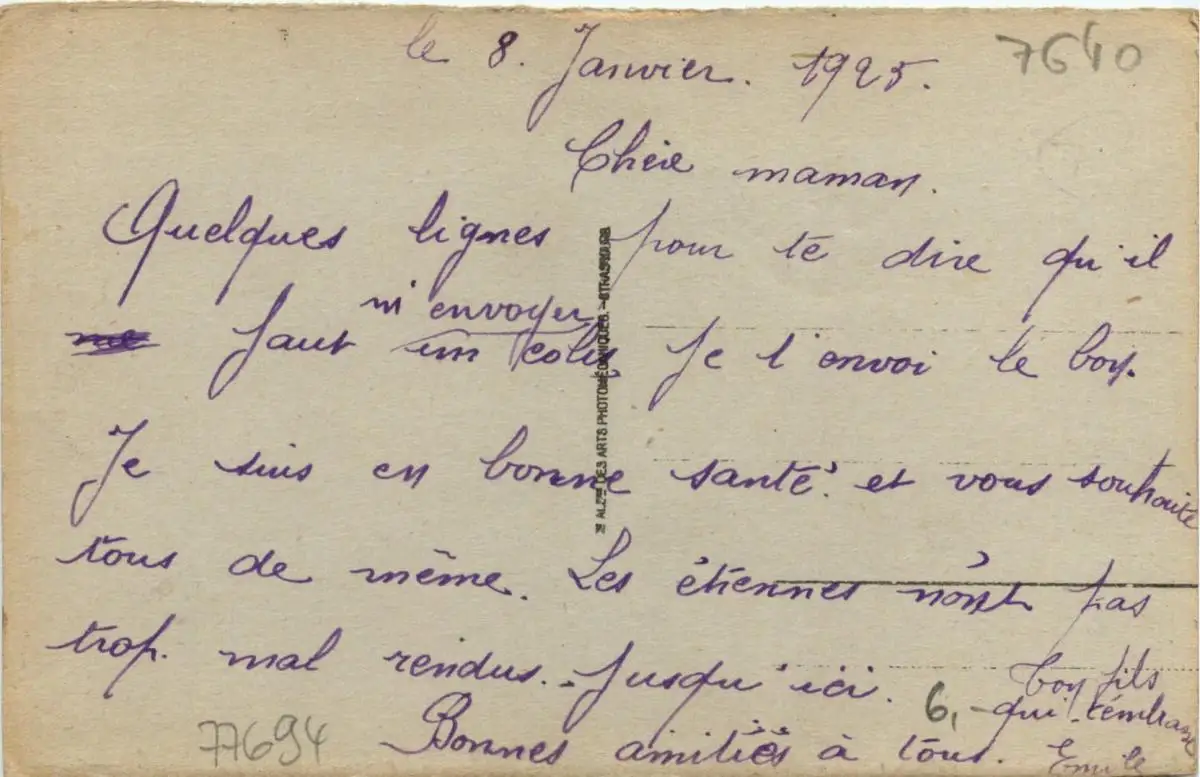 le 8. Janvier. 1925.
7640
Chère maman.
Quelques lignes pour te dire qu'il
m'envoyer
me faut un colis Je t'envoi le bon.
Je suis en bonne santé. et vous souhaite
tous de même. Les étiennes n'ont pas
trop. mal rendus. - Jusqu'ici.
ton fils
6, - qui t'embrasse
Bonnes amitiés à tous. Emile
77694
DES ARTS PHOTOMÉCANIQUES. - STRASBOURG